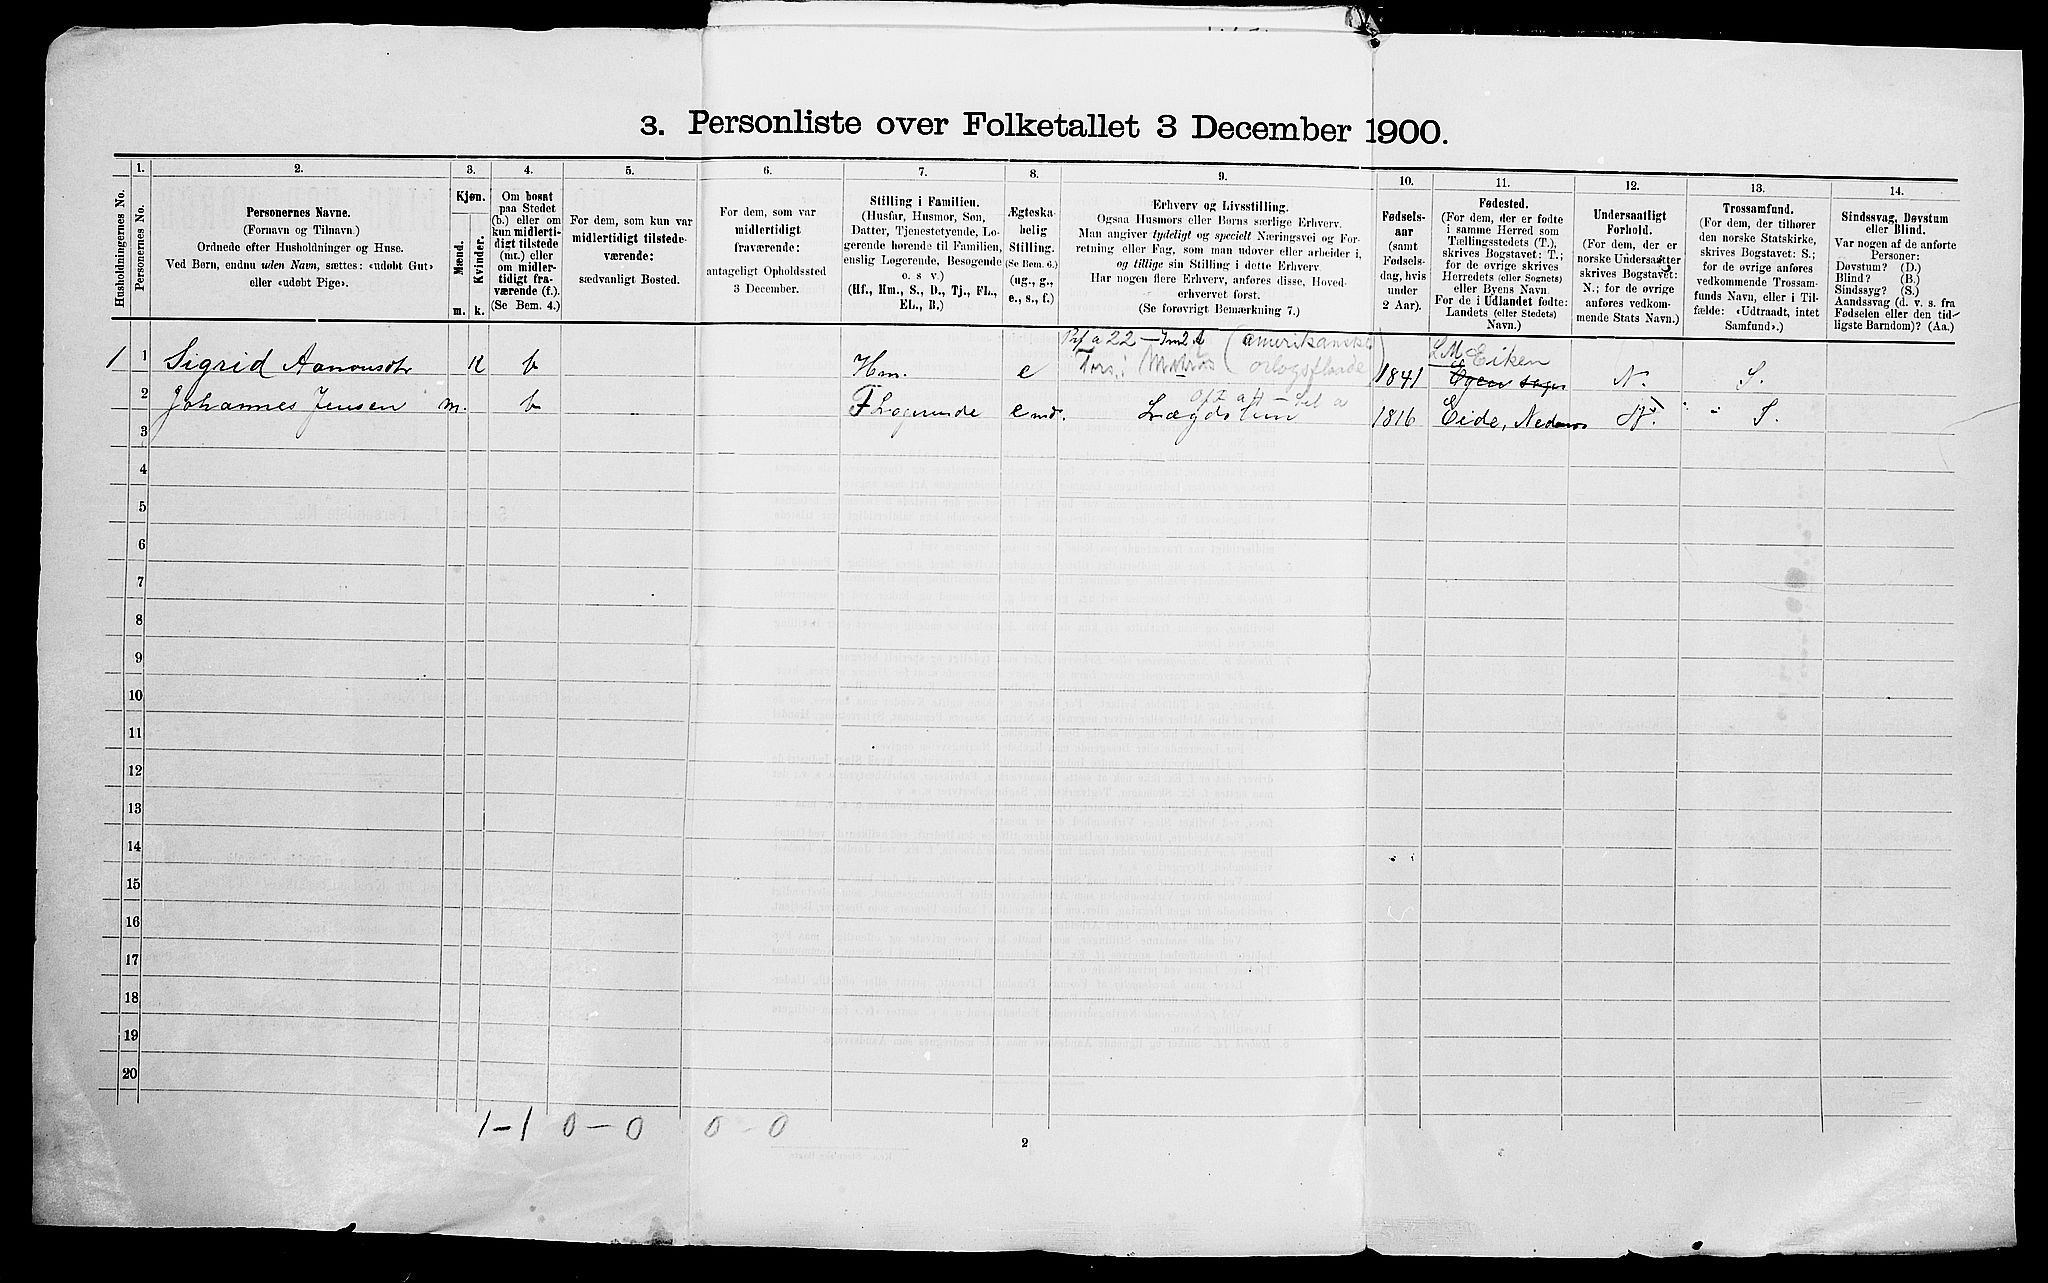 3. Personliste over Folketallet 3 December 1900.
Husholdningernes No.
1.
Personernes No.
2.
Personernes Navne.
(Fornavn og Tilnavn.)
Ordnede efter Husholdninger og Huse.
Ved Børn, endnu uden Navn, sættes: «udøbt Gut»
eller «udøbt Pige».
3.
Kjøn.
Mænd.
Kvinder.
m.
k.
4.
Om bosat
paa Stedet
(b.) eller om
kun midlerti-
digt tilstede
(mt.) eller
om midler-
tidigt fra-
værende (f.).
(Se Bem. 4.)
5.
For dem, som kun var
midlertidigt tilstede-
værende:
sædvanligt Bosted.
6.
For dem, som var
midlertidigt
fraværende:
antageligt Opholdssted
3 December.
7.
Stilling i Familien.
(Husfar, Husmor, Søn,
Datter, Tjenestetyende, Lo-
gerende hørende til Familien,
enslig Logerende, Besøgende
o. s. v.)
(Hf., Hm., S., D., Tj., FL.,
EL., B.)
8.
Ægteska-
belig
Stilling.
(Se Bem. 6.)
(ug., g.,
e., s., f.)
9.
Erhverv og Livsstilling.
Ogsaa Husmors eller Børns særlige Erhverv.
Man angiver tydeligt og specielt Næringsvei og For-
retning eller Fag, som man udøver eller arbeider i,
og tillige sin Stilling i dette Erhverv.
Har nogen flere Erhverv, anføres disse, Hoved-
erhvervet først.
(Se forøvrigt Bemærkning 7.)
10.
Fødsels-
aar
(samt
Fødsels-
dag, hvis
under
2 Aar).
11.
Fødested.
(For dem, der er fødte
i samme Herred som
Tællingsstedets (T.),
skrives Bogstavet: T.;
for de øvrige skrives
Herredets (eller Sognets)
eller Byens Navn.
For de i Udlandet fødte:
Landets (eller Stedets)
Navn.)
12.
Undersaatligt
Forhold.
(For dem, der er
norske Undersaatter
skrives Bogstavet:
N.; for de øvrige
anføres vedkom-
mende Stats Navn.)
13.
Trossamfund.
(For dem, der tilhører
den norske Statskirke,
skrives Bogstavet: S.;
for de øvrige anføres
vedkommende Trossam-
funds Navn, eller i Til-
fælde: «Udtraadt, intet
Samfund».)
14.
Sindssvag, Døvstum
eller Blind.
Var nogen af de anførte
Personer:
Døvstum? (D.)
Blind? (B.)
Sindssyg? (S.)
Aandssvag (d. v. s. fra
Fødselen eller den tid-
ligste Barndom)? (Aa.)
1 1 Sigrid Aanonsdtr k b Hm. e Fors.: Matros (amerikanske orlogsflaade) 1841 L M Eiken N. S.
2 Johannes Jensen m. b FLogerende e md. Lægdslem 1816 Eide, Nedenes N. S.
3
4
5
6
7
8
9
10
11
12
13
14
15
16
17
18
19
20
1-1 0-0 0-0
2